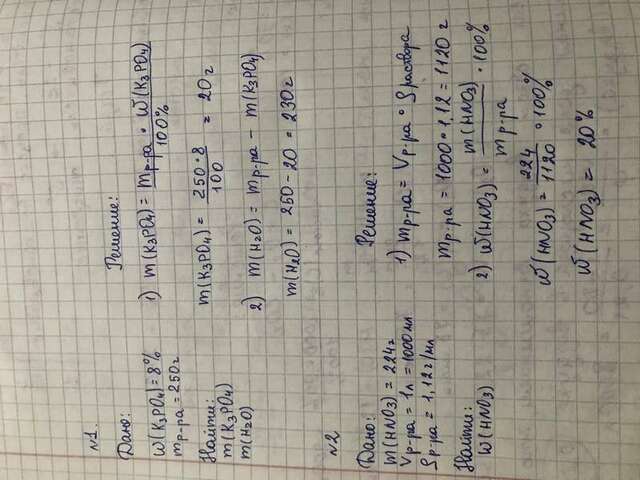 №1.
Дано:
W(K₃PO₄) = 8%
mр-ра = 250г
Найти:
m(K₃PO₄)
m(H₂O)
Решение:
1) m(K₃PO₄) = mр-ра • W(K₃PO₄) / 100%
m(K₃PO₄) = 250•8 / 100 = 20г
2) m(H₂O) = mр-ра – m(K₃PO₄)
m(H₂O) = 250 – 20 = 230г
№2
Дано:
m(HNO₃) = 224г
Vр-ра = 1л = 1000мл
ρр-ра = 1,12г/мл
Найти:
W(HNO₃)
Решение:
1) mр-ра = Vр-ра • ρраствора
mр-ра = 1000•1,12 = 1120 г
2) W(HNO₃) = m(HNO₃) / mр-ра • 100%
W(HNO₃) = 224 / 1120 • 100%
W(HNO₃) = 20%